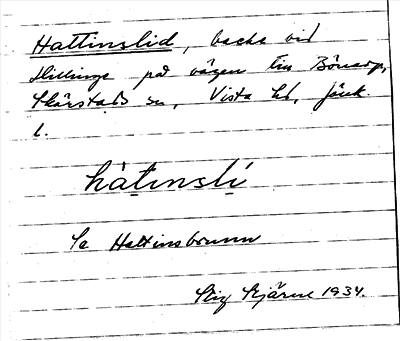 Hattinslid, backe vid
Hullinge på vägen till Bönarp,
Skärstads sn, Vista hd, Jönk.
l.
hàtinslí
Se Hattinsbrunn
Stig Bjärne 1934.